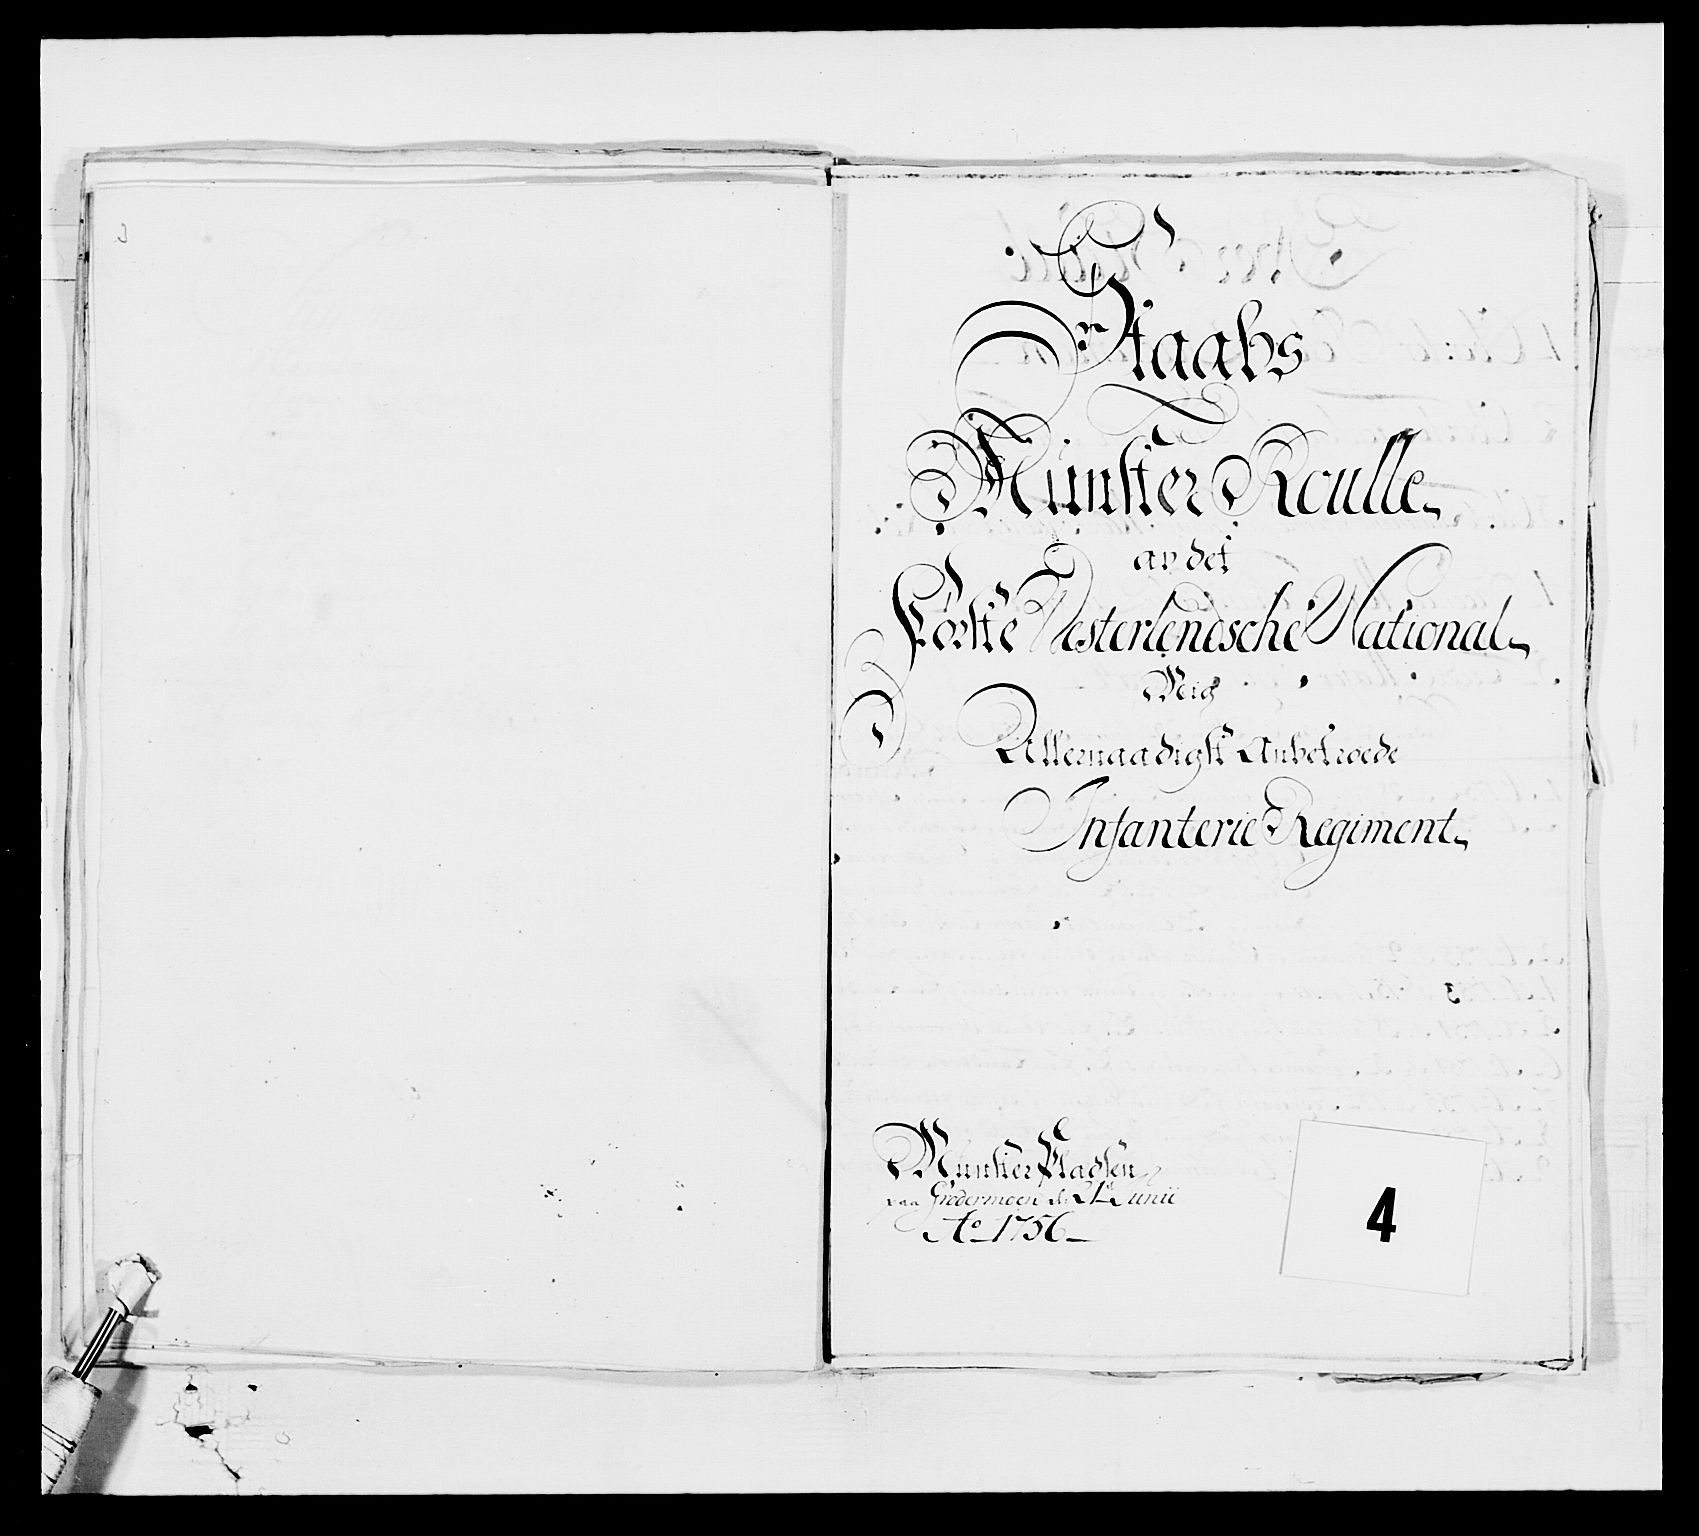 Staabs
Munster Roulle
av det
Förste Vesterlendsche National
Mig
Allernaadigst Anbetroede
Infanterie Regiment
Munster Pladsen
paa Grødermoen d. 21t Junii
Ao 1756
4